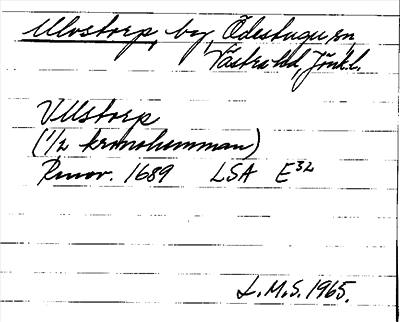 Ulvstorp, by, Ödestugu sn,
Västra hd, Jönk.l.
Ullstorp
(1/2 kronohemman)
Renov. 1689 LSA E32
L.M.S. 1965.